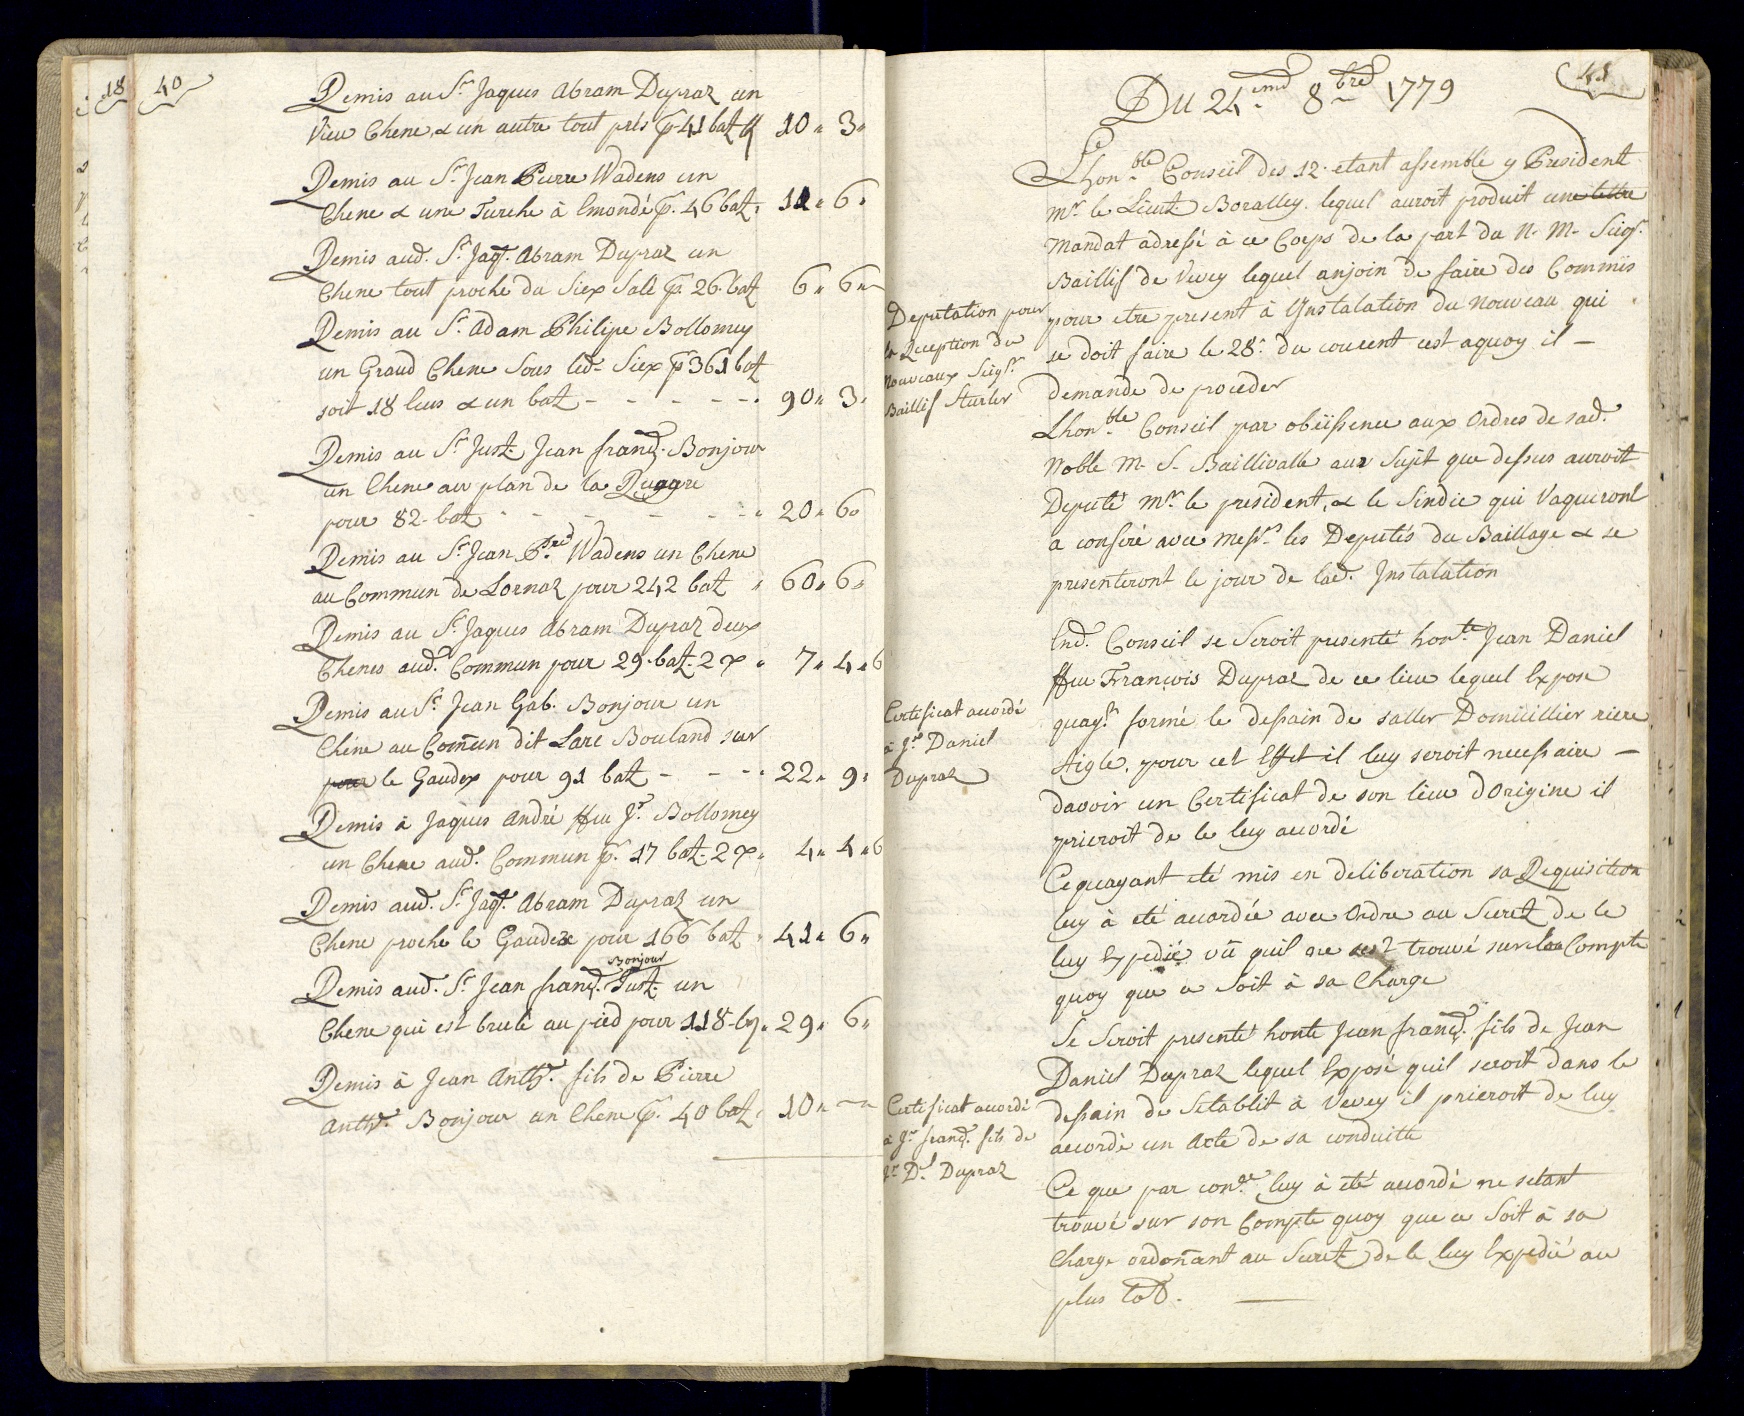 18
40
Remis au Sr Jaques Abram Dupraz un
Vieu Chene, & un autre tout prés pr 41 batz 10 " 3 "
Remis au Sr Jean Pierre Wadens un
Chene & une Turche à Emondé pr. 46 batz. 11 " 6 "
Remis aud. Sr Jaqs. Abram Dupraz un
Chene tout proche du Siex Salé pr 26. batz 6 " 6 "
Remis au Sr. Adam Philipe Bollomey
un Grand Chene Sous led. Siex pr 361 batz
soit 18 leus & un batz - - - - - - 90 " 3 "
Remis au Sr Just. Jean franç. Bonjour
un Chene au plan de la Ruggre
pour 82. batz - - - - - - 20 " 6 "
Remis au Sr Jean Pre Wadens un Chene
au Commun de Lornaz pour 242 batz " 60 " 6 "
Remis au Sr. Jaques Abram Dupraz deux
Chenes aud. Commun pour 29. batz. 2 x " 7 " 4 " 6
Remis au Sr Jean Gab. Bonjour un
Chéne au Com̄un dit Larc Bouland sur
pour le Gaudex pour 91 batz - - - - 22 " 9 "
Remis à Jaques André ffeu Jn. Bollomey
un Chene aud. Commun pr. 17 batz. 2 x " 4 " 4 " 6
Remis aud. Sr. Jaqs. Abram Dupraz un
Chene proche le Gaudex pour 166 batz " 41 " 6 "
Bonjour
Remis aud. Sr. Jean franç. Just. un
Chene qui est brulé au pied pour 118. bz. 29 " 6 "
Remis à Jean Anthe. fils de Pierre
Anthe. Bonjour un Chene pr. 40 batz " 10 "
41
Du 24eme 8bre 1779
Lhonble Conseil des 12. etant assemblé y President
Mr. le Lieutz Boralley. lequel auroit produit une lettre
Mandat adressé à ce Corps de la part du N. M. Seigr.
Baillif de Vevey lequel anjoin de faire des Commiis
pour etre present à Ynstalation du Nouveau qui
se doit faire le 28e. du courent cest aquoy il -
demande de proceder
Deputation pour
la Reception du
Nouveaux Seigr.
Baillif Sturler
Lhonble Conseil par obeïissence aux Ordres de sad.
Noble M. S. Baillivalle aux Sujêt que dessus auroit
Deputé Mr. le president, & le Sindic qui Vaqueront
a conferé avec Messrs. les Deputés du Baillage & se
presenteront le jour de lad. Instalation
End. Conseil se Seroit presenté honte. Jean Daniel
ffeu François Dupraz de ce lieu lequel Expose
quayt. formé le dessain de saller Domicillier riere
Aigle, pour cet Effet il luy seroit necessaire -
davoir un Certificat de son lieu dOrigine il
prieroit de le luy accordé
Certificat accordé
à Jn Daniel
Dupraz
Ce quayant eté mis en deliberation sa Requisition
luy à eté accordée avec Ordre au Secretz de le
luy Expedié vû quil ne sest trouvé sur son Compte
quoy que ce Soit à sa Charge
Se Seroit presenté honte Jean franç. fils de Jean
Daniel Dupraz lequel Exposé quil seroit dans le
dessain de Setablit à Vevey il prieroit de luy
accordé un Acte de sa conduitte
Certificat accordé
à Jn franç. fils de
Jn Dl Dupraz
Ce que par conqe luy à eté accordé ne setant
trouvé sur son Compte quoy que ce Soit à sa
Charge ordon̄ant au Secretz de le luy Expedié au
plus tôt.